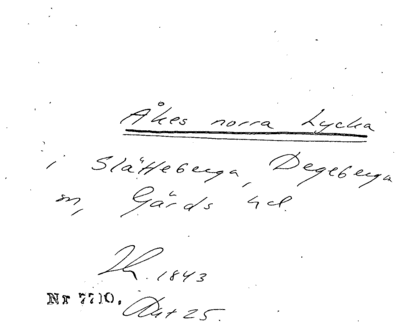 Åkes norra Lycka
i Slätteberga, Degeberga
sn, Gärds hd.
1843
Nr 7710. Akt 25.